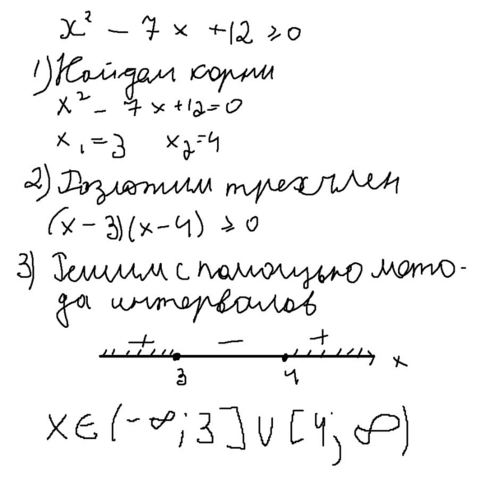 x² - 7x + 12 ≥ 0
1) Найдем корни
x² - 7x + 12 = 0
x₁ = 3 x₂ = 4
2) Разложим трехчлен
(x - 3)(x - 4) ≥ 0
3) Решим с помощью мето-
да интервалов
+ - +
3 4 x
x ∈ (-∞; 3] ∪ [4; ∞)